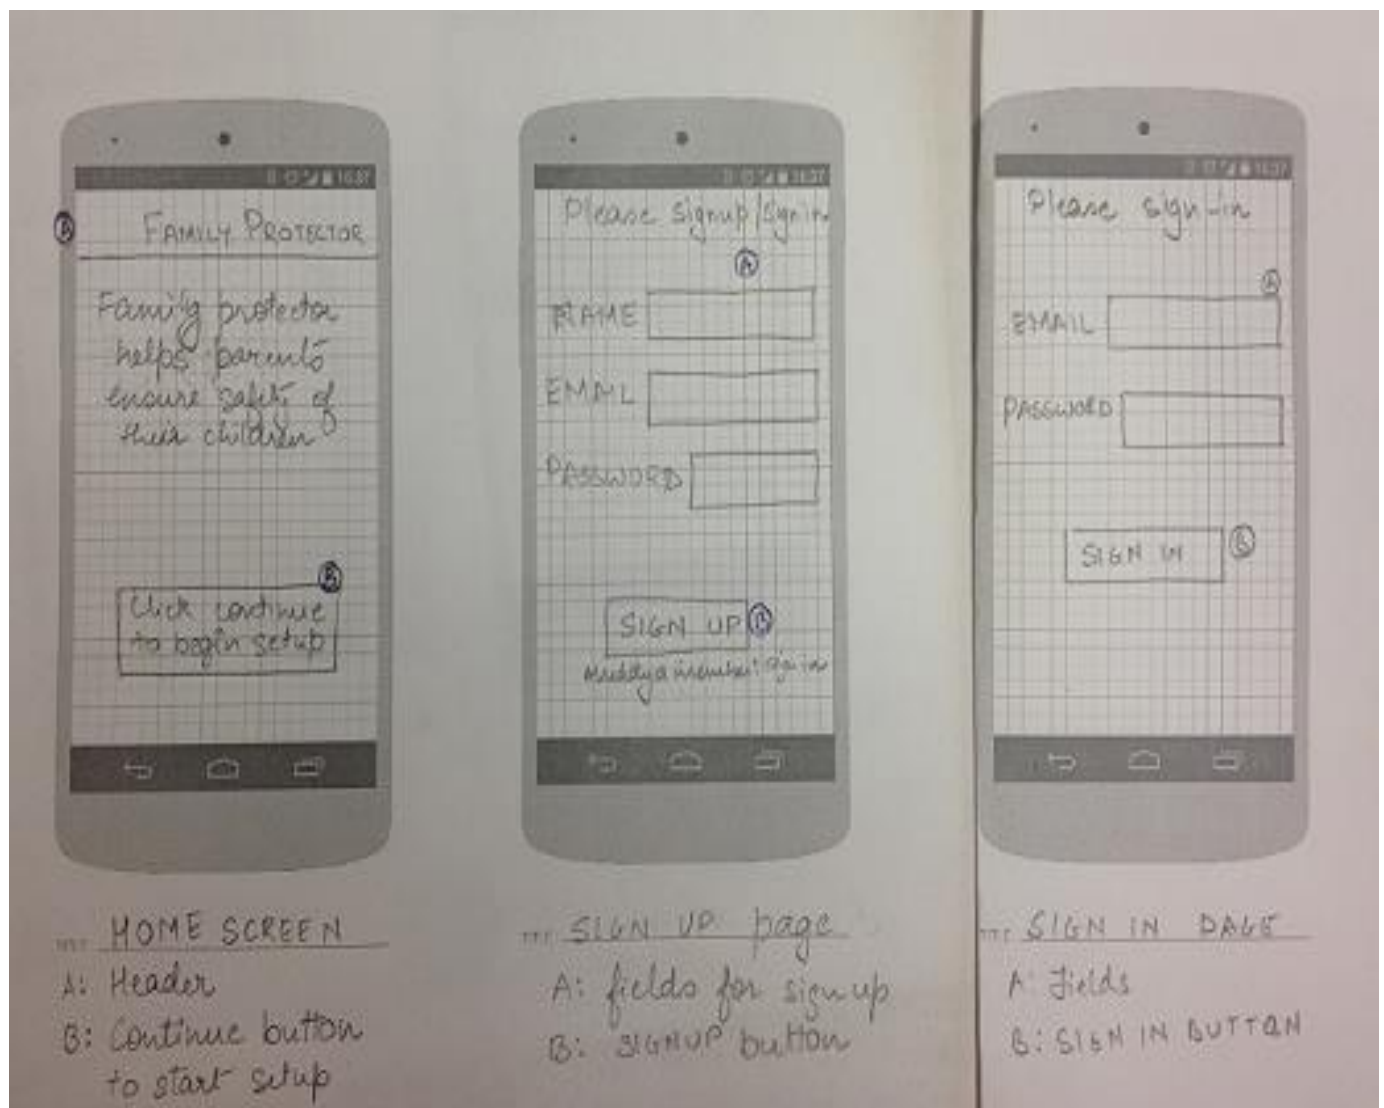 16:37
B
FAMILY PROTECTOR
Family protector
helps parents
ensure safety of
their children
B
Click continue
to begin setup
HOME SCREEN
A: Header
B: Continue button
to start setup
16:37
Please signup/signin
A
NAME
EMAIL
PASSWORD
SIGN UP B
Already a member? sign in
SIGN UP page
A: fields for sign up
B: SIGNUP button
16:37
Please sign-in
A
EMAIL
PASSWORD
SIGN IN B
SIGN IN PAGE
A: Fields
B: SIGN IN BUTTON